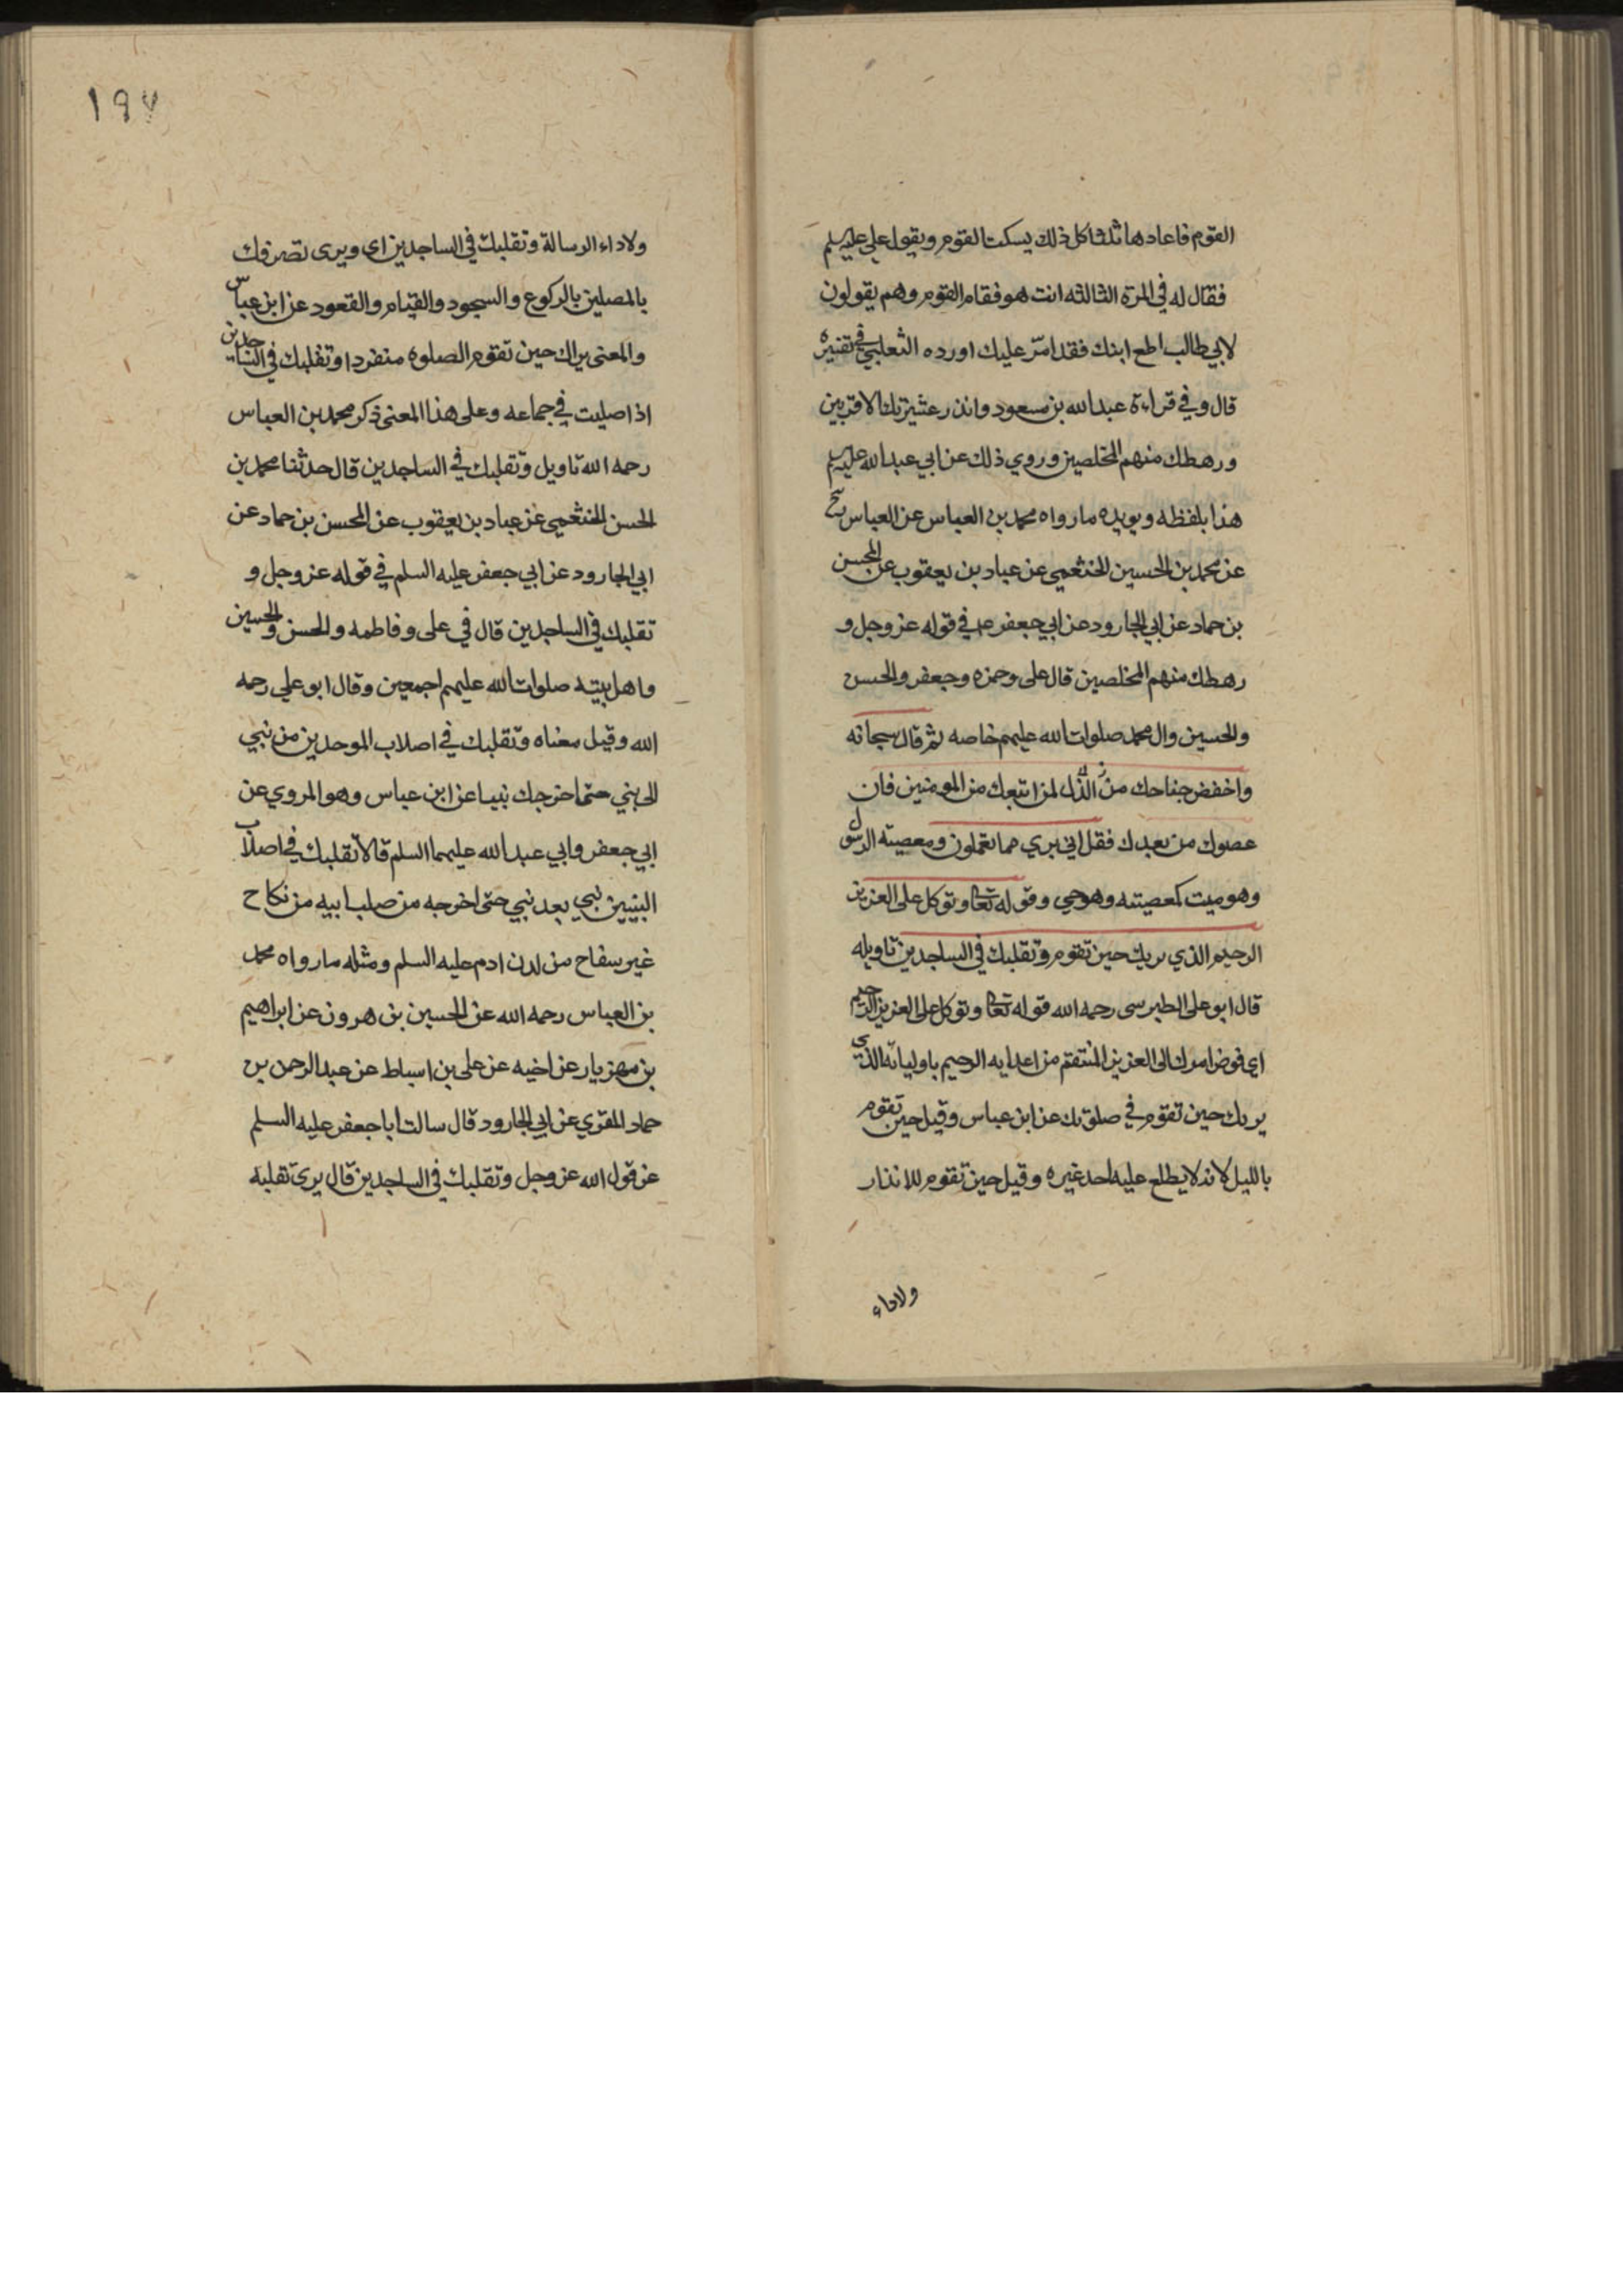 القوم فاعادها ثلثا كل ذلك يسكت القوم ويقول علي عليه سلم
فقال له في المرة الثالثه انت هو فقام القوم وهم يقولون
لابي طالب اطع ابنك فقد امّر عليك اورده الثعلبي في تفسيره
قال وفي قراءة عبد الله بن مسعود وانذر عشيرتك الاقربين
ورهطك منهم المخلصين وروي ذلك عن ابي عبد الله عليه سلم
هذا بلفظه ويويده ما رواه محمد بن العباس عن العباس
عن محمد بن الحسين الخثعمي عن عباد بن يعقوب عن المحسن
بن حماد عن ابي الجارود عن ابي جعفر ع في قوله عز وجل و
رهطك منهم المخلصين قال على وحمزه وجعفر والحسن
والحسين وال محمد صلوات الله عليهم خاصه ثم قال سبحانه
واخفض جناحك من الذل لمن اتبعك من المومنين فان
عصوك من بعدك فقل اني بري مما تعملون ومعصيته الرسول
وهو ميت كمعصيته وهو حي وقوله تعا وتوكل على العزيز
الرحيم الذي يريك حين تقوم وتقلبك في الساجدين تاويله
قال ابو على الطبرسى رحمه الله قوله تعا وتوكل على العزيز الرحيم
اي فوض امرك الى العزيز المنتقم من اعدايه الرحيم باوليائه الذي
يريك حين تقوم في صلوتك عن ابن عباس وقيل حين تقوم
بالليل لانه لا يطلع عليه احد غيره وقيل حين تقوم للانذار
ولاداء
١٩٧
ولاداء الرسالة وتقلبك في الساجدين اى ويرى تصرفك
بالمصلين بالركوع والسجود والقيام والقعود عن ابن عباس
والمعنى يراك حين تقوم الصلوة منفردا وتقلبك في الساجدين
اذا صليت في جماعه وعلى هذا المعنى ذكر محمد بن العباس
رحمه الله تاويل وتقلبك في الساجدين قال حدثنا محمد بن
الحسن الخثعمي عن عباد بن يعقوب عن المحسن بن حماد عن
ابي الجارود عن ابي جعفر عليه السلم في قوله عز وجل و
تقلبك في الساجدين قال في على وفاطمه والحسن والحسين
واهل بيته صلوات الله عليهم اجمعين وقال ابو علي رحمه
الله وقيل معناه وتقلبك في اصلاب الموحدين من نبي
الى نبي حتى اخرجك نبيا عن ابن عباس وهو المروي عن
ابي جعفر وابي عبد الله عليهما السلم قالا تقلبك في اصلاب
النبيين نبي بعد نبي حتى اخرجه من صلب ابيه من نكاح
غير سفاح من لدن ادم عليه السلم ومثله ما رواه محمد
بن العباس رحمه الله عن الحسين بن هرون عن ابراهيم
بن مهزيار عن اخيه عن على بن اسباط عن عبد الرحمن بن
حماد المقري عن ابي الجارود قال سالت ابا جعفر عليه السلم
عن قول الله عز وجل وتقلبك في الساجدين قال يرى تقلبه